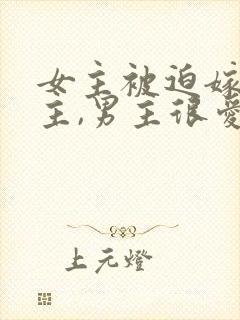 女主被迫嫁
主,男主很爱
上元燈